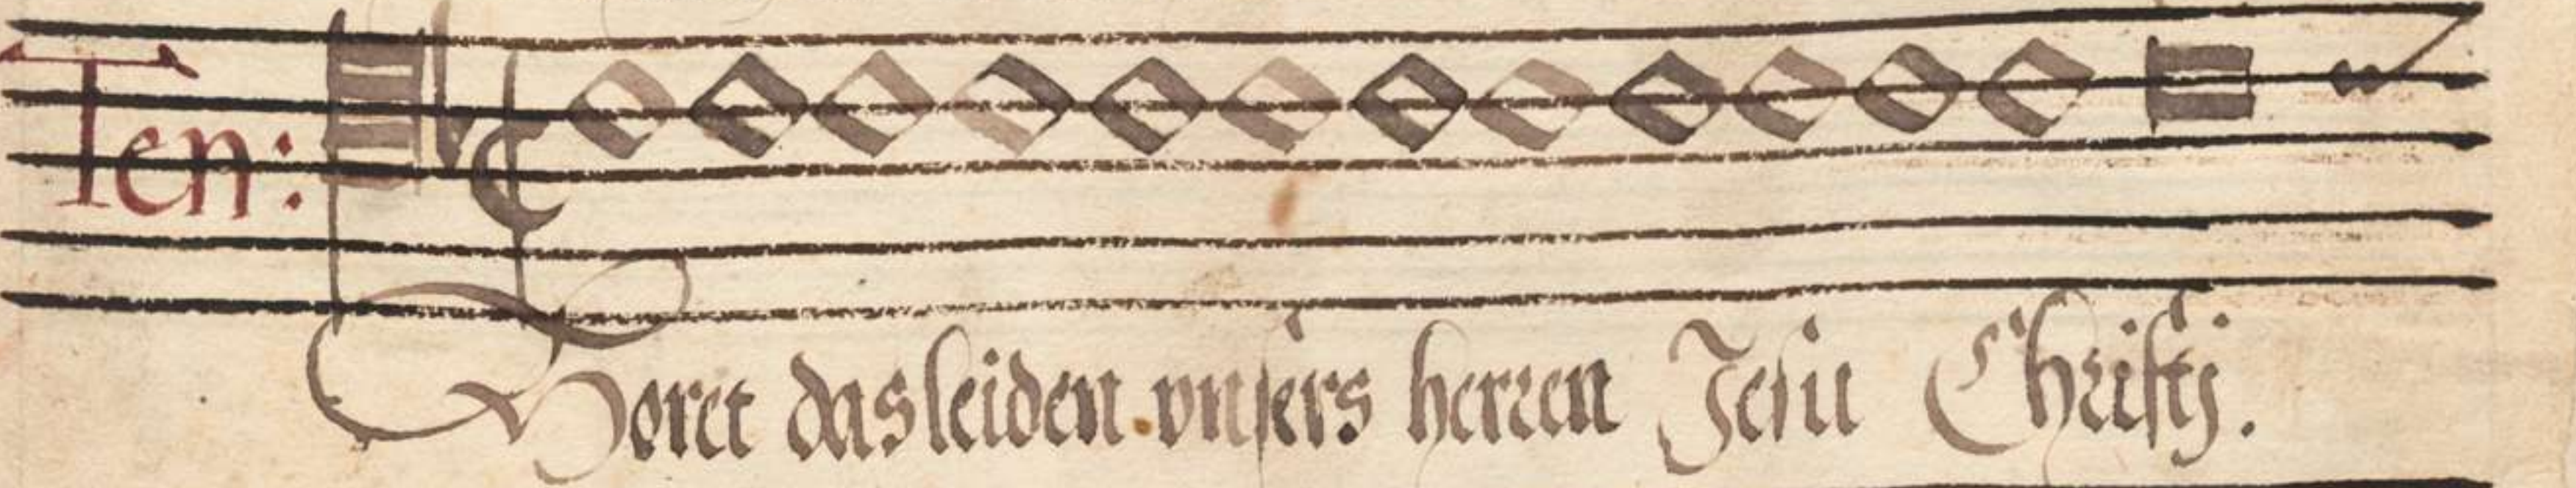 Ten:
Horet das leiden vnsers herren Jesu Christj.